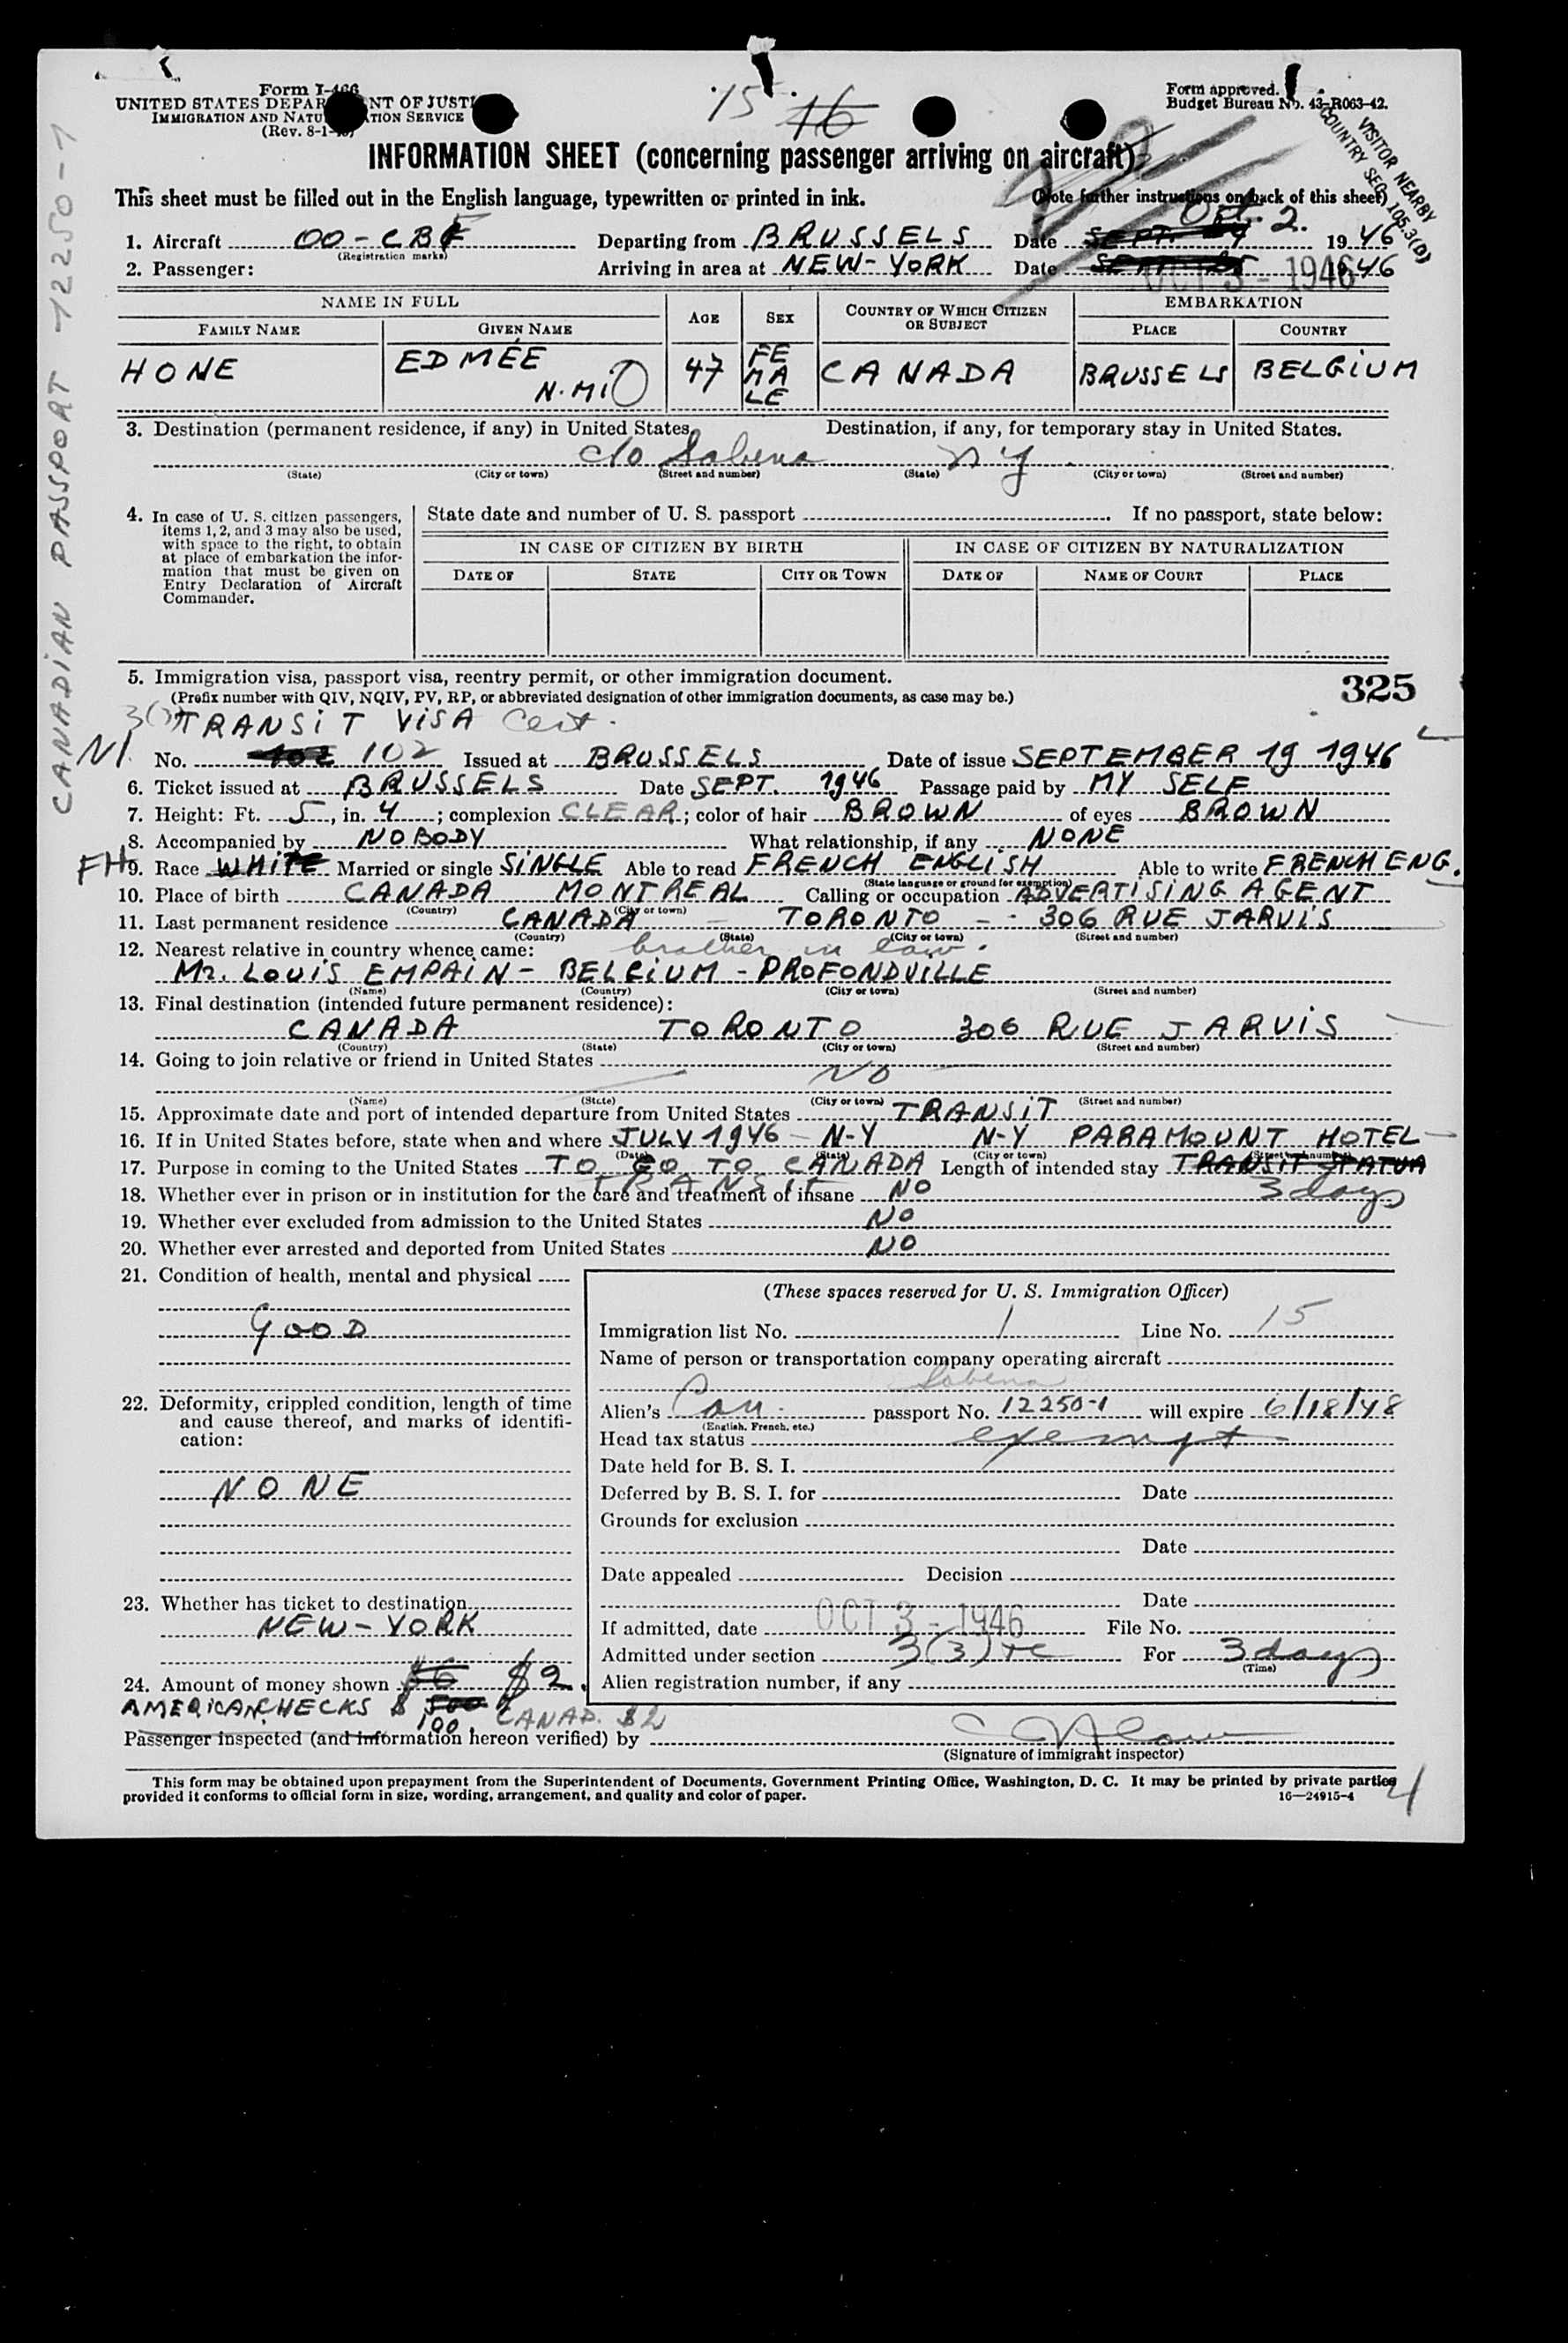 Form I-466
UNITED STATES DEPARTMENT OF JUSTICE
IMMIGRATION AND NATURALIZATION SERVICE
(Rev. 8-1-
15 16
Form approved.
Budget Bureau No. 43-R063-42.
VISITOR NEARBY
COUNTRY SEC. 105.3(D)
INFORMATION SHEET (concerning passenger arriving on aircraft)
This sheet must be filled out in the English language, typewritten or printed in ink. (Note further instructions on back of this sheet)
CANADIAN PASSPORT -12250-1
1. Aircraft OO-CBF Departing from BRUSSELS Date SEPT. Oct. 2. 1946
(Registration marks)
2. Passenger: Arriving in area at NEW-YORK Date SEPT 25 1946
OCT 3 - 1946
NAME IN FULL AGE SEX COUNTRY OF WHICH CITIZEN OR SUBJECT EMBARKATION
FAMILY NAME GIVEN NAME PLACE COUNTRY
HONE EDMÉE N.MI 47 FEMALE CANADA BRUSSELS BELGIUM
3. Destination (permanent residence, if any) in United States. Destination, if any, for temporary stay in United States.
c/o Sabena N Y
(State) (City or town) (Street and number) (State) (City or town) (Street and number)
4. In case of U. S. citizen passengers, items 1, 2, and 3 may also be used, with space to the right, to obtain at place of embarkation the information that must be given on Entry Declaration of Aircraft Commander.
State date and number of U. S. passport . If no passport, state below:
IN CASE OF CITIZEN BY BIRTH IN CASE OF CITIZEN BY NATURALIZATION
DATE OF STATE CITY OR TOWN DATE OF NAME OF COURT PLACE
5. Immigration visa, passport visa, reentry permit, or other immigration document.
(Prefix number with QIV, NQIV, PV, RP, or abbreviated designation of other immigration documents, as case may be.)
325
TRANSIT VISA Cert.
NI. No. 102 102 Issued at BRUSSELS Date of issue SEPTEMBER 19 1946
6. Ticket issued at BRUSSELS Date SEPT. 1946 Passage paid by MY SELF
7. Height: Ft. 5, in. 4; complexion CLEAR; color of hair BROWN of eyes BROWN
8. Accompanied by NOBODY What relationship, if any NONE
FH 9. Race WHITE Married or single SINGLE Able to read FRENCH ENGLISH Able to write FRENCH ENG.
(State language or ground for exemption)
10. Place of birth CANADA MONTREAL Calling or occupation ADVERTISING AGENT
(Country) (City or town)
11. Last permanent residence CANADA - TORONTO - - 306 RUE JARVIS
(Country) (State) (City or town) (Street and number)
12. Nearest relative in country whence came: brother in law.
Mr. LOUIS EMPAIN - BELGIUM - PROFONDVILLE
(Name) (Country) (City or town) (Street and number)
13. Final destination (intended future permanent residence):
CANADA TORONTO 306 RUE JARVIS
(Country) (State) (City or town) (Street and number)
14. Going to join relative or friend in United States
NO
(Name) (State) (City or town) (Street and number)
15. Approximate date and port of intended departure from United States TRANSIT
16. If in United States before, state when and where JULY 1946 - N-Y N-Y PARAMOUNT HOTEL
(Date) (State) (City or town) (Street and number)
17. Purpose in coming to the United States TO GO TO CANADA Length of intended stay TRANSIT STATUA
TRANSIT
3 days
18. Whether ever in prison or in institution for the care and treatment of insane NO
19. Whether ever excluded from admission to the United States NO
20. Whether ever arrested and deported from United States NO
21. Condition of health, mental and physical
GOOD
22. Deformity, crippled condition, length of time and cause thereof, and marks of identification:
NONE
23. Whether has ticket to destination
NEW-YORK
24. Amount of money shown $6 $2.
AMERICAN CHECKS $ 500 100, CANAD. $2
(These spaces reserved for U. S. Immigration Officer)
Immigration list No. 1 Line No. 15
Name of person or transportation company operating aircraft
Sabena
Alien's Can. passport No. 12250-1 will expire 6/18/48
(English, French, etc.)
Head tax status exempt
Date held for B. S. I.
Deferred by B. S. I. for Date
Grounds for exclusion
Date
Date appealed Decision
Date
If admitted, date OCT 3 - 1946 File No.
Admitted under section 3(3) TC For 3 days
(Time)
Alien registration number, if any
Passenger inspected (and information hereon verified) by
(Signature of immigrant inspector)
This form may be obtained upon prepayment from the Superintendent of Documents, Government Printing Office, Washington, D. C. It may be printed by private parties
provided it conforms to official form in size, wording, arrangement, and quality and color of paper. 16—24915-4
4